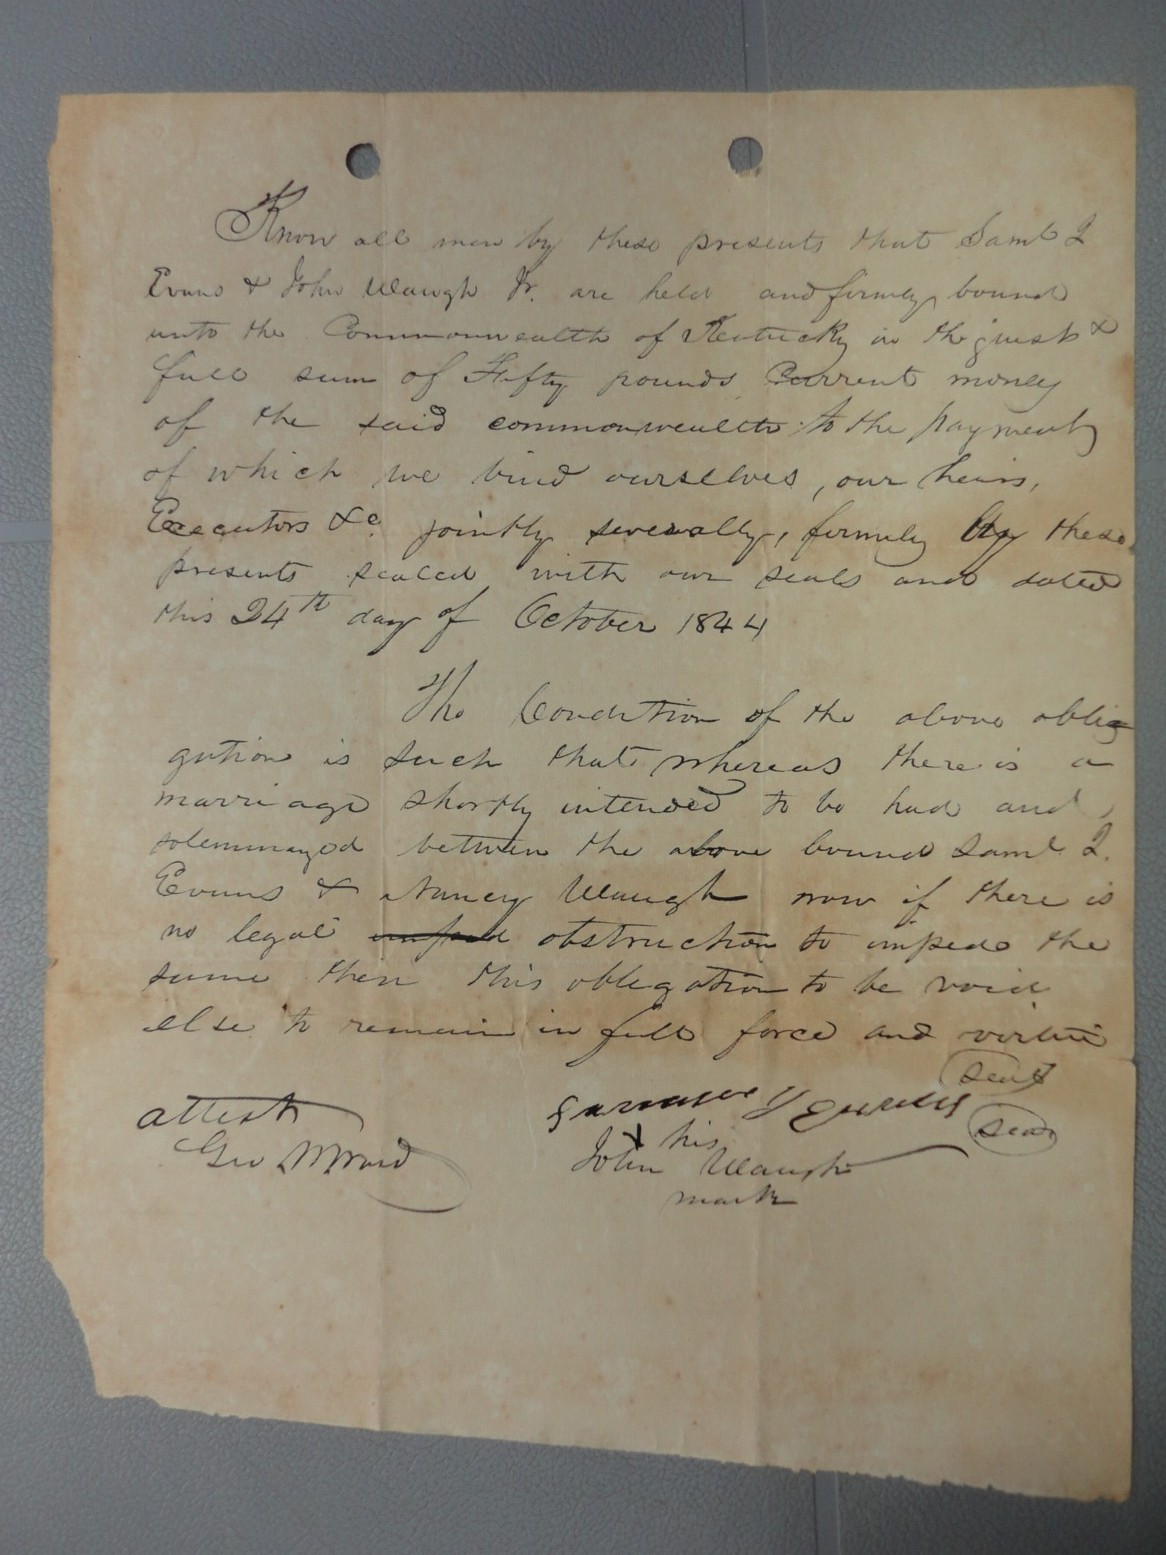 Know all men by these presents that Saml I
Evans & John Waugh Jr. are held and firmly bound
unto the Commonwealth of Kentucky in the just &
full sum of Fifty pounds Current money
of the said commonwealth to the payment
of which we bind ourselves, our heirs,
Executors &c. jointly severally, firmly by these
presents sealed with our seals and dated
this 24th day of October 1844
The Condition of the above oblig
gation is such that whereas there is a
marriage shortly intended to be had and
solemnazed between the above bound Saml I.
Evans & Nancy Waugh now if there is
no legal obstruction to impede the
same then this obligation to be void
else to remain in full force and virtue
attest
Geo
Evans seal
his
John Waugh seal
mark